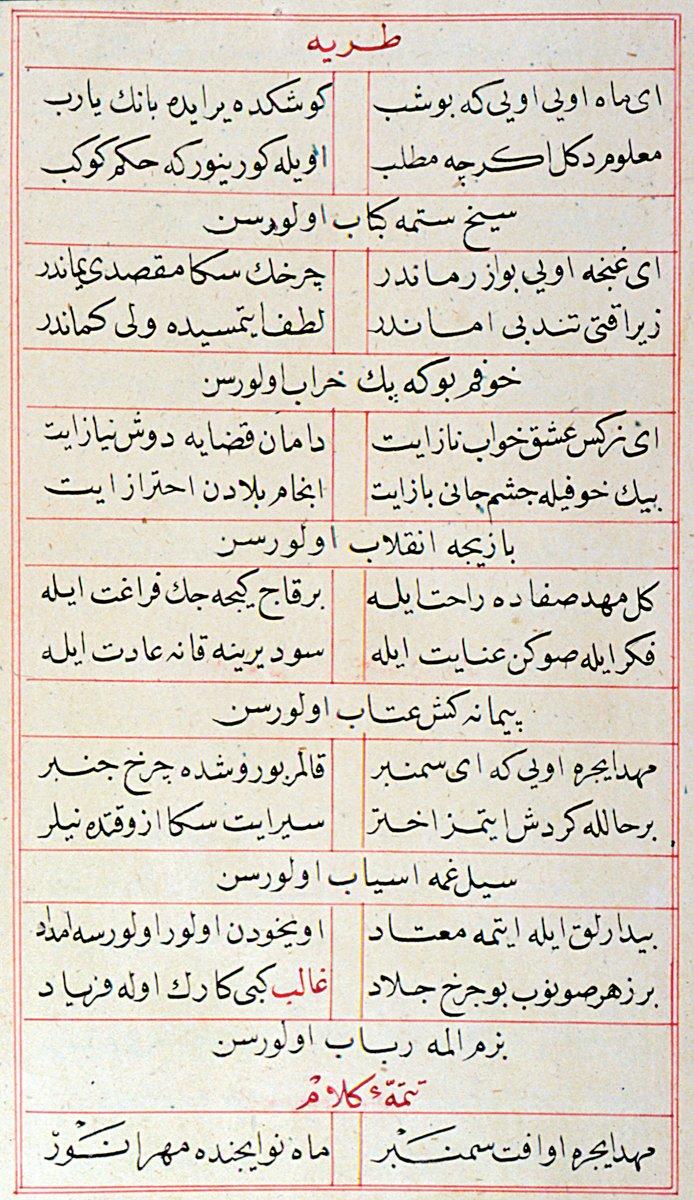 طربه
ای ماه اویی اویی که بوشب کوشکده یرایده بانك یارب
معلوم دکل اکرچه مطلب اویله کورینورکه حکم کوکب
سیخ ستمه کباب اولورسن
ای غنجه اویی بو از زماندر چرخك سکا مقصدی یماندر
زیرا قتی تندبی اماندر لطف ایتمسیده ولی کماندر
خوفم بوکه پك خراب اولورسن
ای نرکس عشق خواب ناز ایت دامان قضایه دوش نیاز ایت
بیك خوفیله جشم جانی باز ایت انجام بلادن احتراز ایت
بازیجه انقلاب اولورسن
کل مهد صفاده راحت ایله برقاج کیجه جك فراغت ایله
فکر ایله صوکن عنایت ایله سود یرینه قانه عادت ایله
پیمانه کش عتاب اولورسن
مهد ایجره اویی که ای سمنبر قالمز بو روشده چرخ جنبر
بر حالله کردش ایتمز اختر سیر ایت سکا ازوقتده نیلر
سیل غمه اسیاب اولورسن
بیدارلق ایله ایتمه معتاد اویخودن اولور اولورسه امداد
بر زهر صونوب بو جرخ جلاد غالب کبی کارك اوله فریاد
بزم المه رباب اولورسن
تتمهٔ کلام
مهد ایجره او افت سمنبر ماه نو ایجنده مهر انور